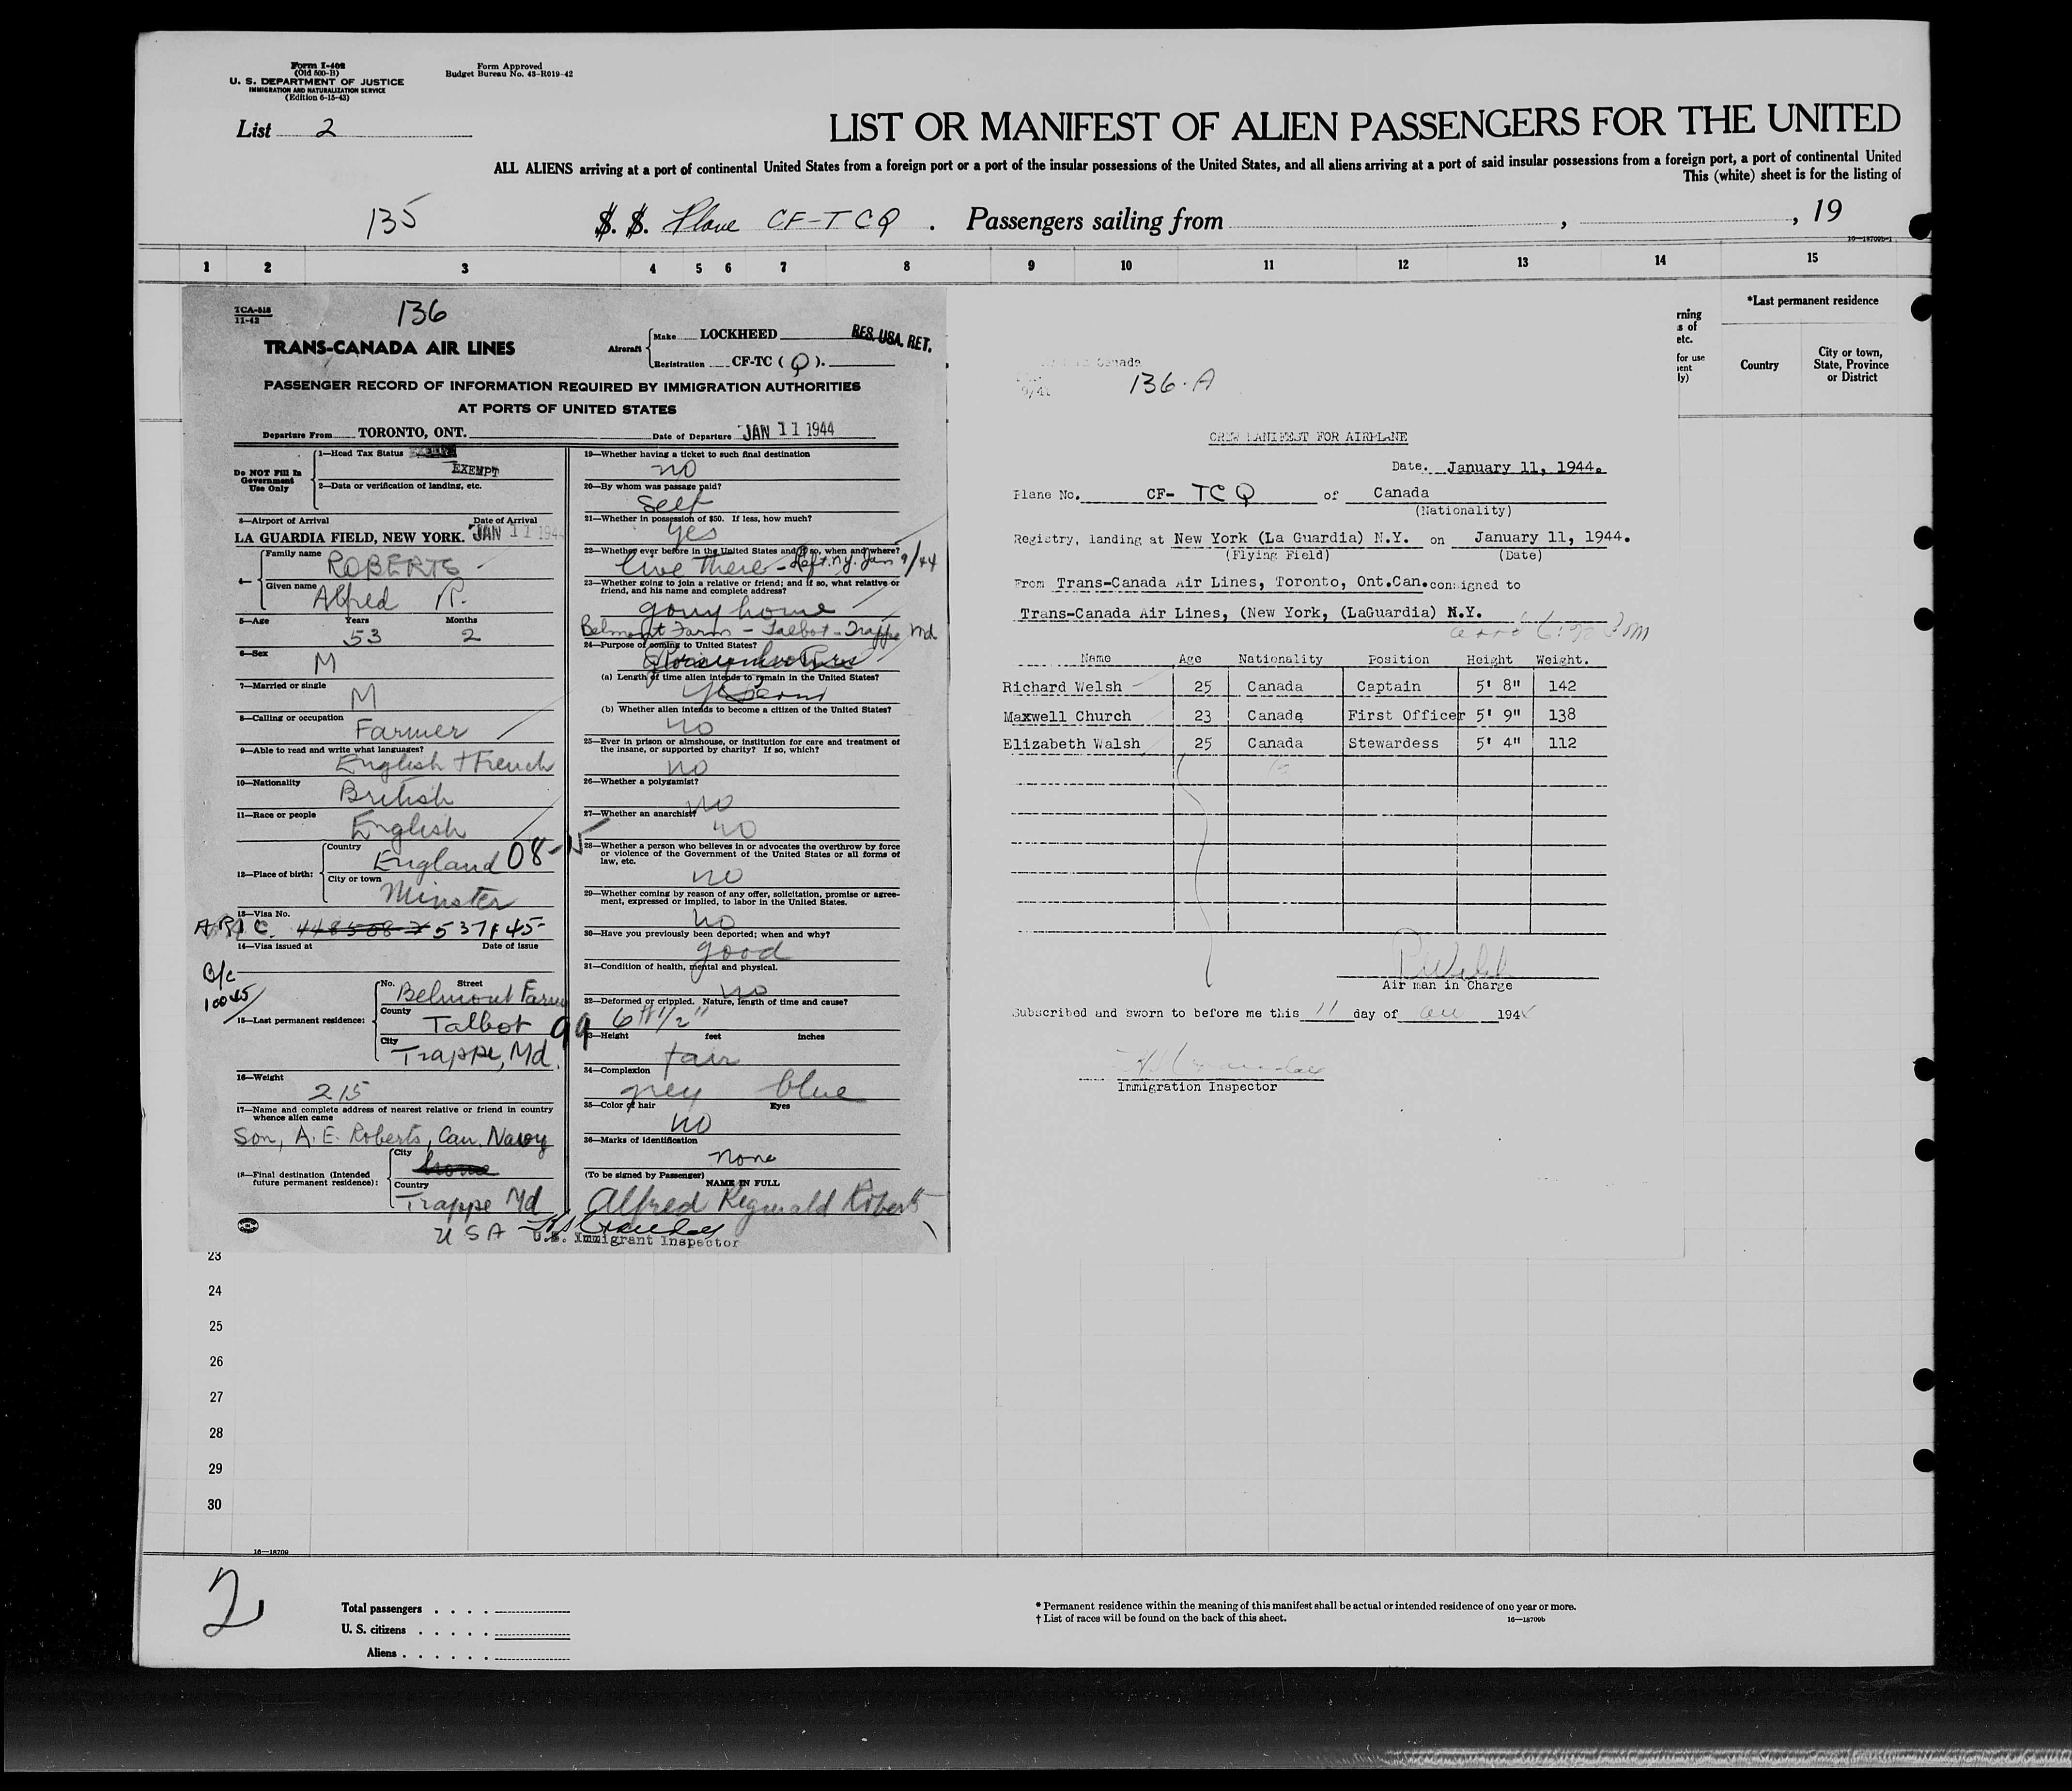 Form I-402
(Old 500-B)
U. S. DEPARTMENT OF JUSTICE
IMMIGRATION AND NATURALIZATION SERVICE
(Edition 6-15-43)
Form Approved
Budget Bureau No. 43-R019-42
List 2
LIST OR MANIFEST OF ALIEN PASSENGERS FOR THE UNITED
ALL ALIENS arriving at a port of continental United States from a foreign port or a port of the insular possessions of the United States, and all aliens arriving at a port of said insular possessions from a foreign port, a port of continental United
This (white) sheet is for the listing of
135
S. S. Plane CF-TCQ . Passengers sailing from , , 19
16—18709b-1
1 2 3 4 5 6 7 8 9 10 11 12 13 14 15
TCA-518
11-42
136
TRANS-CANADA AIR LINES
Aircraft
Make LOCKHEED
RES. USA. RET.
Registration CF-TC ( Q ).
PASSENGER RECORD OF INFORMATION REQUIRED BY IMMIGRATION AUTHORITIES
AT PORTS OF UNITED STATES
Departure From TORONTO, ONT.
Date of Departure JAN 11 1944
Do NOT Fill In
Government
Use Only
1—Head Tax Status
EXEMPT
2—Data or verification of landing, etc.
3—Airport of Arrival Date of Arrival
LA GUARDIA FIELD, NEW YORK. JAN 11 1944
4—
Family name ROBERTS
Given name Alfred R.
5—Age Years Months
53 2
6—Sex
M
7—Married or single
M
8—Calling or occupation
Farmer
9—Able to read and write what languages?
English + French
10—Nationality
British
11—Race or people
English
12—Place of birth:
Country
England 08-
City or town
Minster
13—Visa No.
A.R.I.C. 5371845
14—Visa issued at Date of issue
B/c
10045
15—Last permanent residence:
No. Street
Belmont Farm
County
Talbot 99
City
Trappe, Md.
16—Weight
215
17—Name and complete address of nearest relative or friend in country
whence alien came
Son, A. E. Roberts, Can. Navy
18—Final destination (Intended
future permanent residence):
City
home
Country
Trappe Md
USA
19—Whether having a ticket to such final destination
no
20—By whom was passage paid?
self
21—Whether in possession of $50. If less, how much?
yes
22—Whether ever before in the United States and if so, when and where?
live there - Left N.Y. Jan 9/44
23—Whether going to join a relative or friend; and if so, what relative or
friend, and his name and complete address?
going home
Belmont Farm - Talbot - Trappe Md
24—Purpose of coming to United States?
(a) Length of time alien intends to remain in the United States?
(b) Whether alien intends to become a citizen of the United States?
no
25—Ever in prison or almshouse, or institution for care and treatment of
the insane, or supported by charity? If so, which?
no
26—Whether a polygamist?
no
27—Whether an anarchist?
no
28—Whether a person who believes in or advocates the overthrow by force
or violence of the Government of the United States or all forms of
law, etc.
no
29—Whether coming by reason of any offer, solicitation, promise or agree-
ment, expressed or implied, to labor in the United States.
no
30—Have you previously been deported; when and why?
good
31—Condition of health, mental and physical.
no
32—Deformed or crippled. Nature, length of time and cause?
6 ft 1/2"
33—Height feet inches
fair
34—Complexion
grey blue
35—Color of hair Eyes
no
36—Marks of identification
none
(To be signed by Passenger)
NAME IN FULL
Alfred Reginald Roberts
U.S. Immigrant Inspector
Canada
136-A
CREW MANIFEST FOR AIRPLANE
Date. January 11, 1944.
Plane No. CF- TCQ of Canada
(Nationality)
Registry, landing at New York (La Guardia) N.Y. on January 11, 1944.
(Flying Field) (Date)
From Trans-Canada Air Lines, Toronto, Ont.Can.consigned to
Trans-Canada Air Lines, (New York, (LaGuardia) N.Y.
Name Age Nationality Position Height Weight.
Richard Welsh 25 Canada Captain 5' 8" 142
Maxwell Church 23 Canada First Officer 5' 9" 138
Elizabeth Walsh 25 Canada Stewardess 5' 4" 112
R Welsh
Air man in Charge
Subscribed and sworn to before me this 11 day of 194
Immigration Inspector
rning
s of
etc.
for use
ent
ly)
*Last permanent residence
Country
City or town,
State, Province
or District
23
24
25
26
27
28
29
30
16—18709
2
Total passengers
U. S. citizens
Aliens
* Permanent residence within the meaning of this manifest shall be actual or intended residence of one year or more.
† List of races will be found on the back of this sheet. 16—18709b